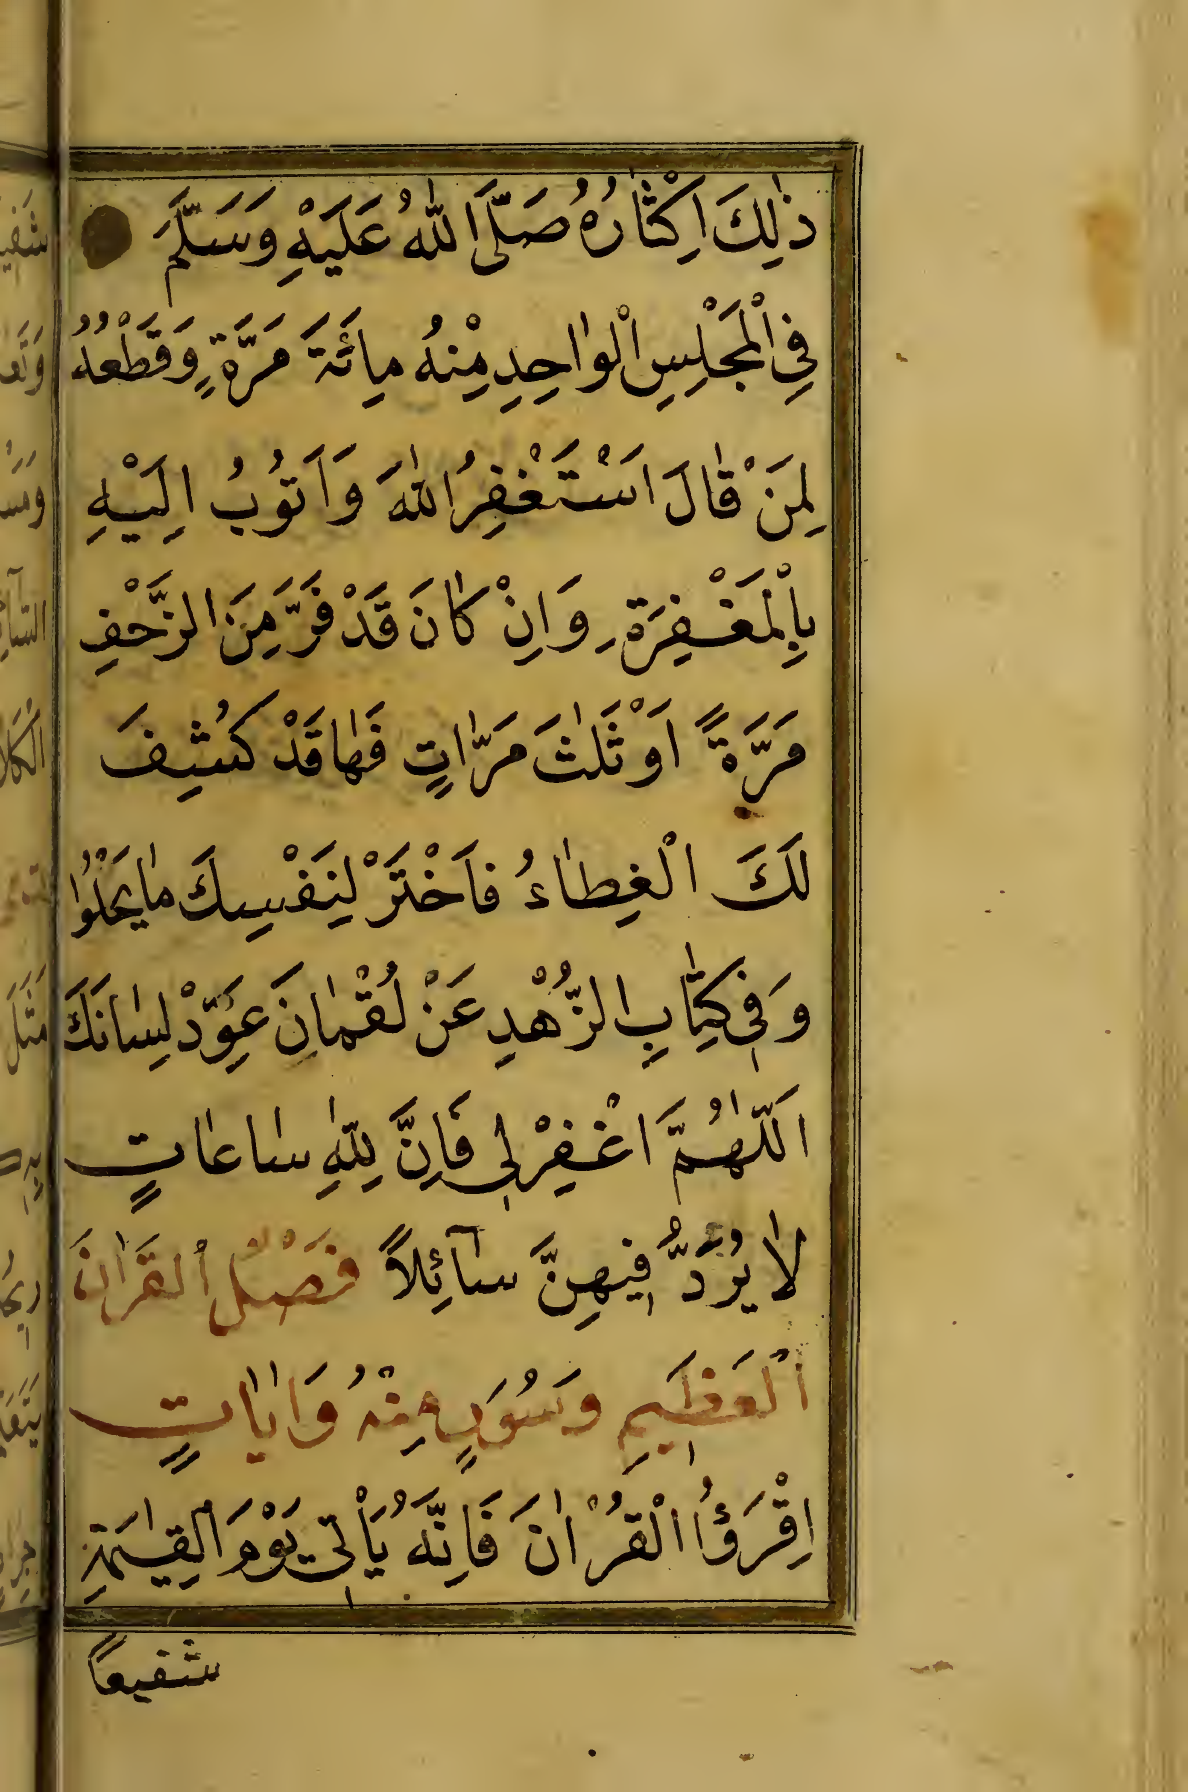 ذٰلِكَ اِكْثٰارُهُ صَلَّى اللّٰهُ عَلَيْهِ وَسَلَّمَ
فِي الْمَجْلِسِ الْوٰاحِدِ مِنْهُ مِائَةَ مَرَّةٍ وَقَطْعُهُ
لِمَنْ قٰالَ اَسْتَغْفِرُ اللّٰهَ وَاَتُوبُ اِلَيْهِ
بِالْمَغْفِرَةِ وَاِنْ كٰانَ قَدْ فَرَّ مِنَ الزَّحْفِ
مَرَّةً اَوْ ثَلٰثَ مَرّٰاتٍ فَهٰا قَدْ كُشِفَ
لَكَ الْغِطٰاءُ فَاخْتَرْ لِنَفْسِكَ مٰا يَحْلُوا
وَفِي كِتٰابِ الزُّهْدِ عَنْ لُقْمٰانَ عَوِّدْ لِسٰانَكَ
اَللّٰهُمَّ اغْفِرْ لِي فَاِنَّ لِلّٰهِ سٰاعٰاتٍ
لٰا يُرَدُّ فِيهِنَّ سٰآئِلاً فَضْلُ الْقُرْاٰنِ
الْعَظِيمِ وَسُوَرٍ مِنْهُ وَاٰيٰاتٍ
اِقْرَؤُا الْقُرْاٰنَ فَاِنَّهُ يَأْتِي يَوْمَ الْقِيٰمَةِ
شفيعاً